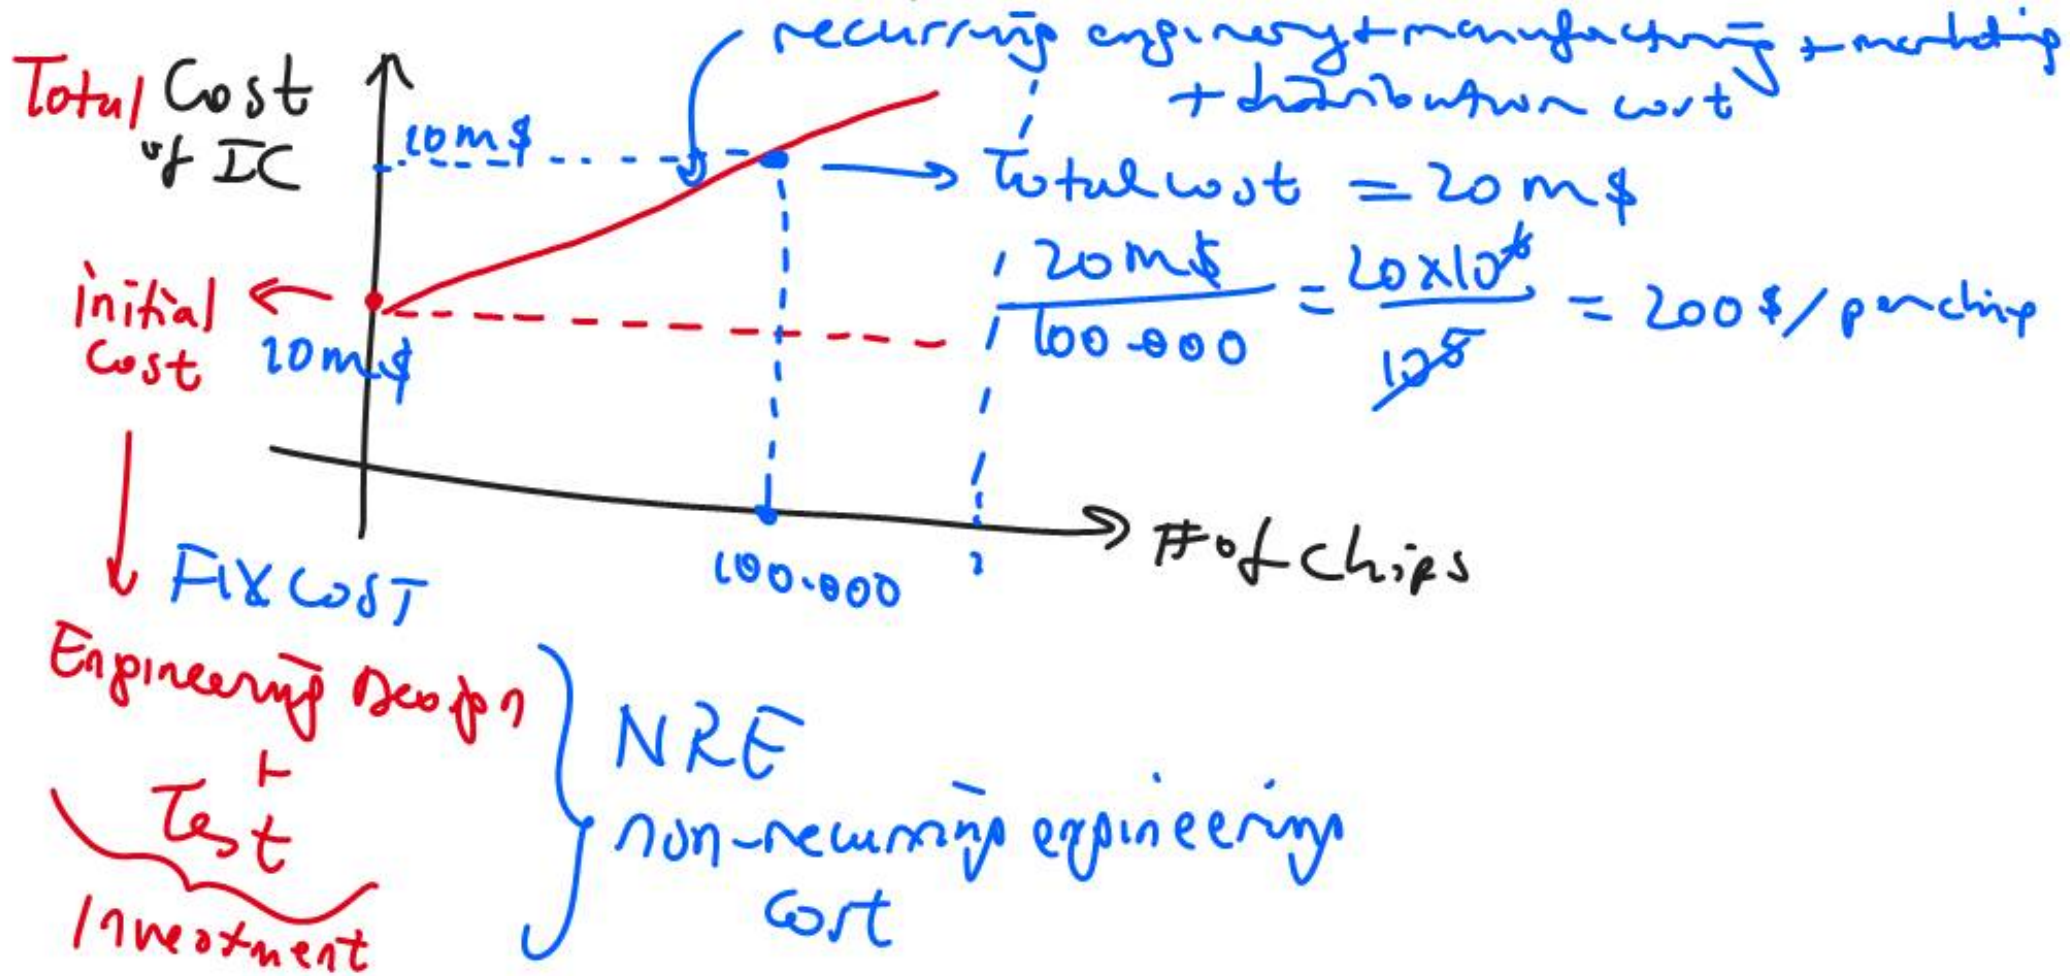 recurring enginery + manufacturing + marketing
+ distribution cost
Total Cost
of IC
10m$
Total cost = 20 m$
20m$ / 100.000 = 20x10^6 / 10^5 = 200$/per chip
initial
cost
10m$
# of chips
100.000
FIX COST
Engineering Design
+
Test
Investment
NRE
non-recurring engineering
cost